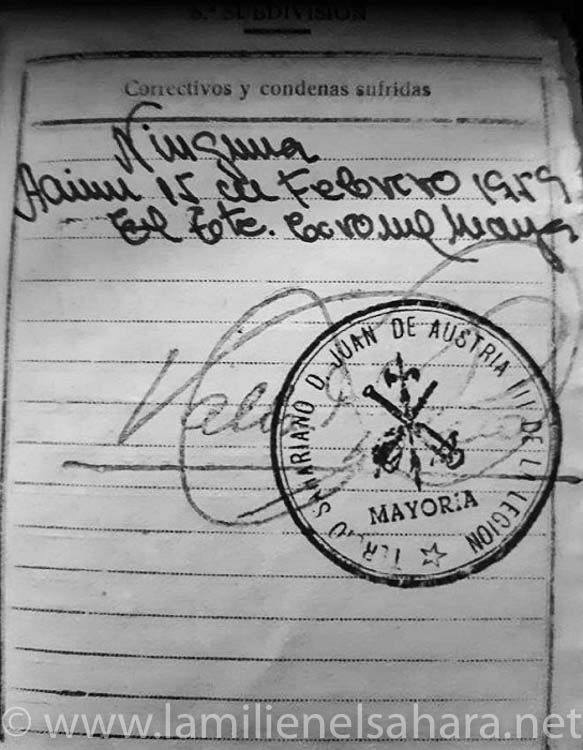 5.ª SUBDIVISION
Correctivos y condenas sufridas
Ninguna
Aaiun 15 de Febrero 1959
El Tte. Coronel Mayor
TERCIO SAHARIANO D. JUAN DE AUSTRIA III DE LA LEGION
MAYORIA
© www.lamilienelsahara.net